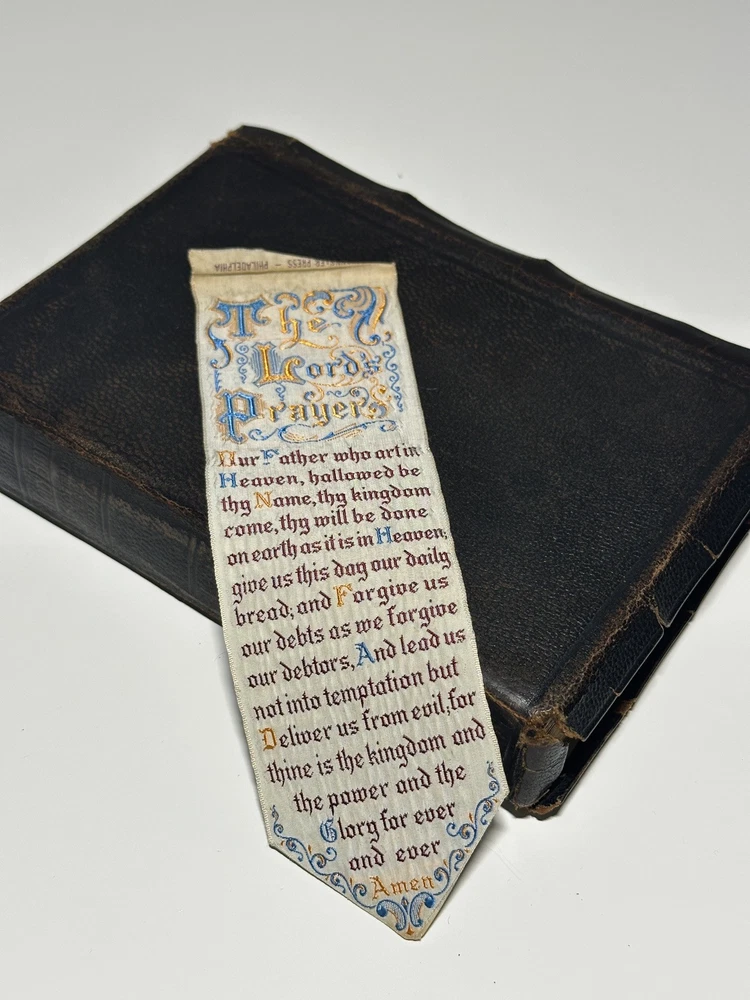 PRESS – PHILADELPHIA
The
Lord's
Prayer
Our Father who art in
Heaven, hallowed be
thy Name, thy kingdom
come, thy will be done
on earth as it is in Heaven;
give us this day our daily
bread; and Forgive us
our debts as we forgive
our debtors, And lead us
not into temptation but
Deliver us from evil, for
thine is the kingdom and
the power and the
Glory for ever
and ever
Amen